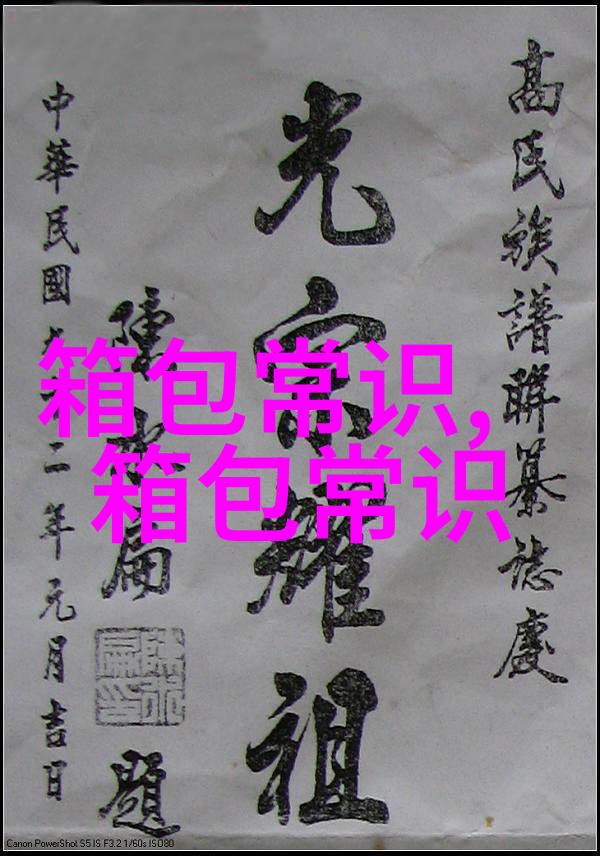 高氏族譜聯纂誌慶
光宗耀祖
陳
扁
題
中華民國
二年元月吉日
箱包常识,
箱包常识
Canon PowerShot S5 IS F3.2 1/60s ISO80